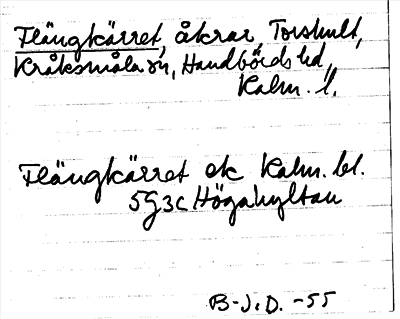 Flängkärret, åkrar, Torshult,
Kråksmåla sn, Handbörds hd,
Kalm. l.
Flängkärret ek Kalm. bl.
5G3c Högahyltan
B-J.D. -55